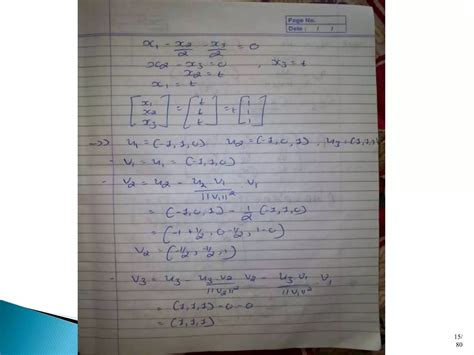 Page No.
Date : / /
x₁ - x₂/2 - x₃/2 = 0
x₂ - x₃ = 0 , x₃ = t
x₂ = t
x₁ = t
[x₁ x₂ x₃] = [t t t] = t [1 1 1]
u₁ = (-1,1,0) u₂ = (-1,0,1) , u₃ = (1,1,1)
- v₁ = u₁ = (-1,1,0)
- v₂ = u₂ - u₂ · v₁ / ||v₁||² · v₁
= (-1,0,1) - 1/2 (-1,1,0)
= (-1 + 1/2, 0 - 1/2, 1 - 0)
v₂ = (-1/2, -1/2, 1)
- v₃ = u₃ - u₃ · v₂ / ||v₂||² v₂ - u₃ · v₁ / ||v₁||² · v₁
= (1,1,1) - 0 - 0
= (1,1,1)
15/
80